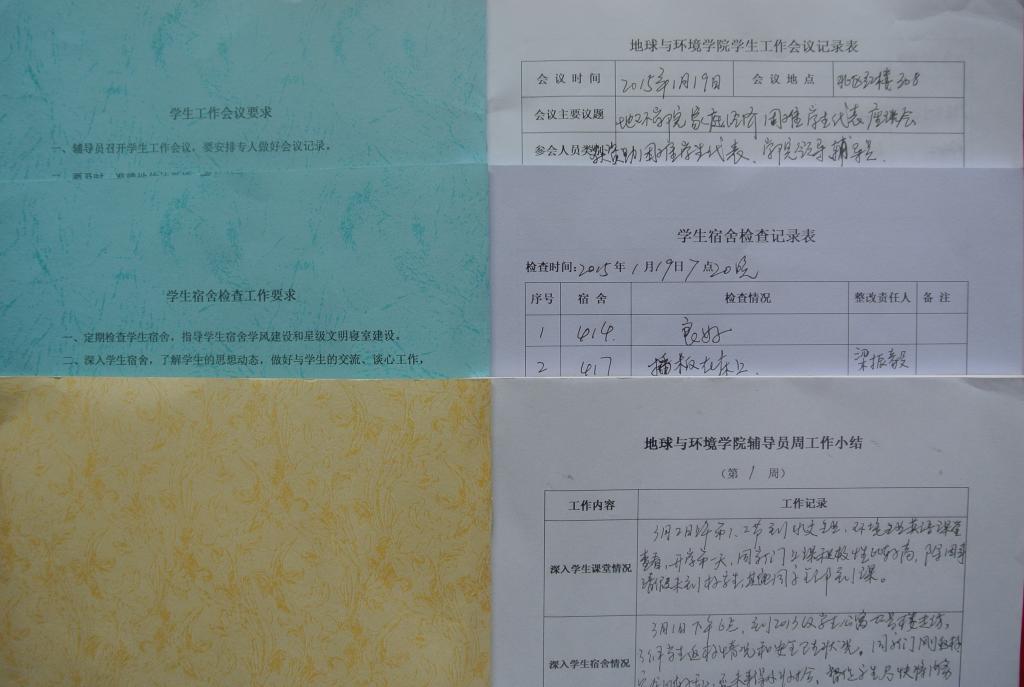 学生工作会议要求
一、辅导员召开学生工作会议,要安排专人做好会议记录。
地球与环境学院学生工作会议记录表
会议时间 2015年1月19日 会议地点 北区红楼308
会议主要议题 地环学院家庭经济困难学生代表座谈会
参会人员类别 受资助困难学生代表、学院领导辅导员
学生宿舍检查工作要求
一、定期检查学生宿舍,指导学生宿舍学风建设和星级文明寝室建设。
二、深入学生宿舍,了解学生的思想动态,做好与学生的交流、谈心工作,
学生宿舍检查记录表
检查时间:2015年1月19日7点20晚
序号 宿舍 检查情况 整改责任人 备注
1 414 良好
2 417 插板在床上 梁振毅
地球与环境学院辅导员周工作小结
(第 1 周)
工作内容 工作记录
深入学生课堂情况
3月2日上午第1、2节到
环境专业英语课堂
查看,开学第一天,同学们上课积极性比较高,除因事
请假未到校学生,其他同学全部到课。
深入学生宿舍情况
3月1日下午6点,到2013级学生公寓
学生返校情况和安全卫生状况。同学们刚返校